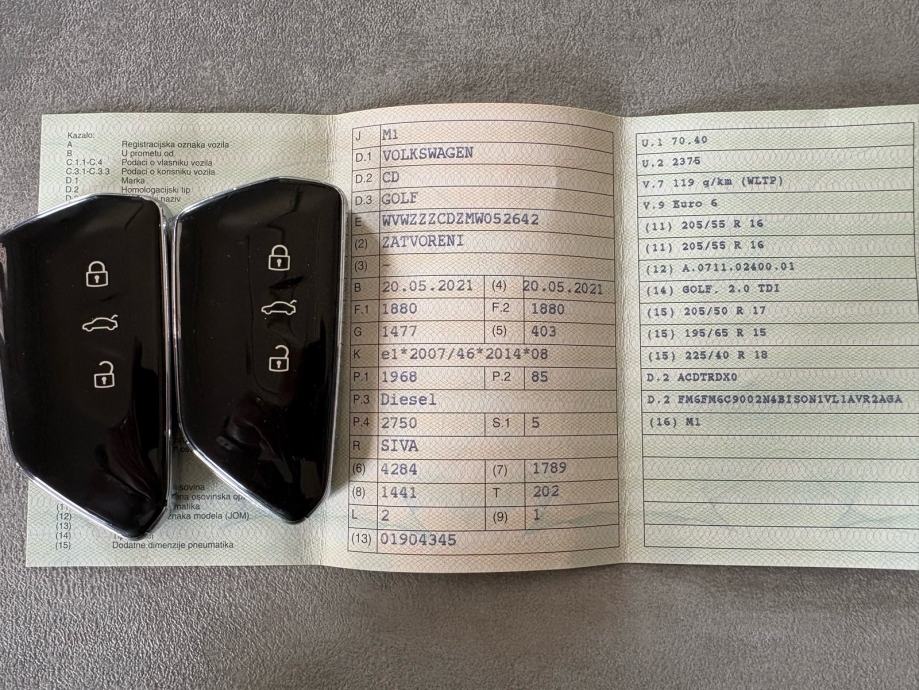 Kazalo:
A Registracijska oznaka vozila
B U prometu od
C.1.1-C.4 Podaci o vlasniku vozila
C.3.1-C.3.3 Podaci o korisniku vozila
D.1 Marka
D.2 Homologacijski tip
naziv
sovina
osovinska
matika
(12) znaka modela (JOM)
(13)
(14)
(15) Dodatne dimenzije pneumatika
J M1
D.1 VOLKSWAGEN
D.2 CD
D.3 GOLF
E WVWZZZCDZMW052642
(2) ZATVORENI
(3) –
B 20.05.2021 (4) 20.05.2021
F.1 1880 F.2 1880
G 1477 (5) 403
K e1*2007/46*2014*08
P.1 1968 P.2 85
P.3 Diesel
P.4 2750 S.1 5
R SIVA
(6) 4284 (7) 1789
(8) 1441 T 202
L 2 (9) 1
(13) 01904345
U.1 70.40
U.2 2375
V.7 119 g/km (WLTP)
V.9 Euro 6
(11) 205/55 R 16
(11) 205/55 R 16
(12) A.0711.02400.01
(14) GOLF, 2.0 TDI
(15) 205/50 R 17
(15) 195/65 R 15
(15) 225/40 R 18
D.2 ACDTRDX0
D.2 FM6FM6C9002N4BISON1VL1AVR2AGA
(16) M1